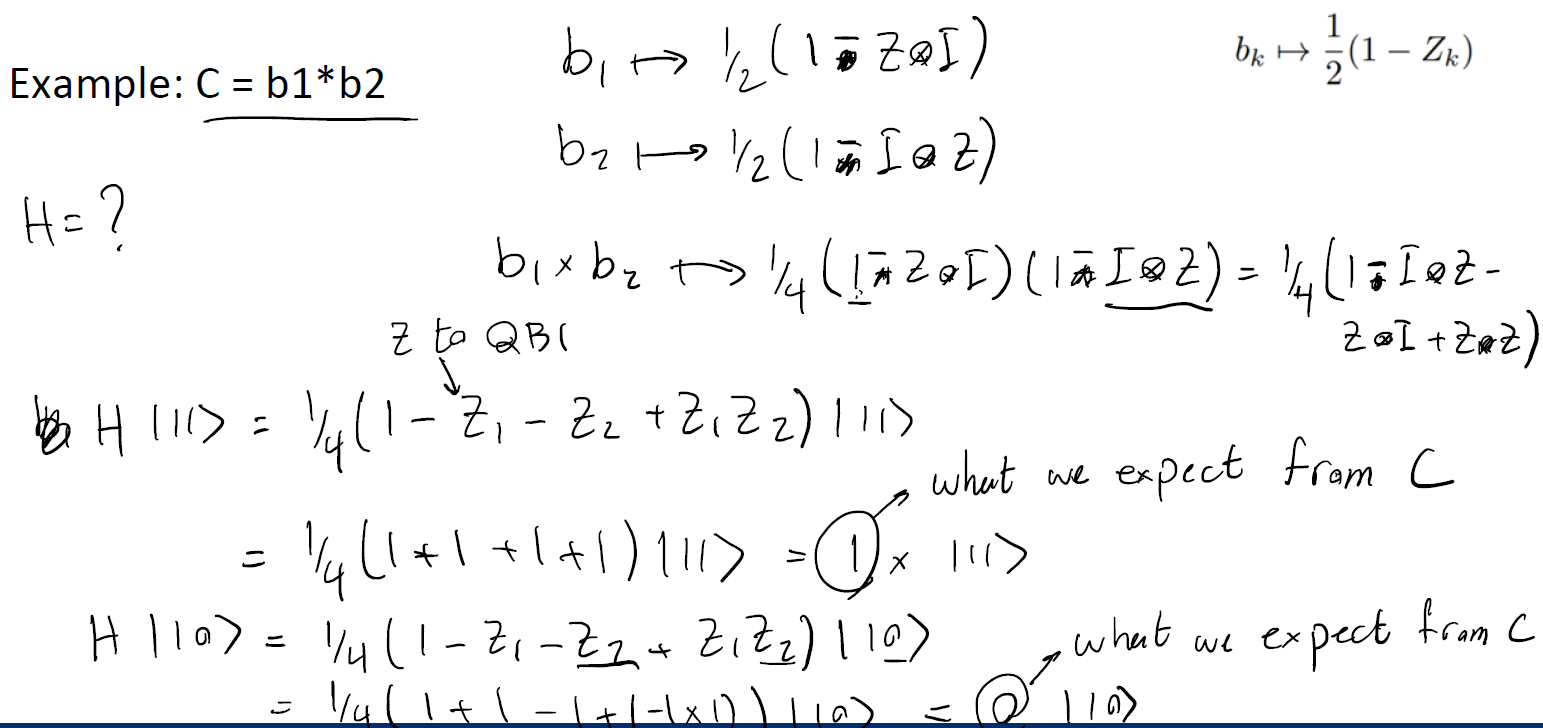 b₁ ↦ 1/2(1 - Z⊗I)
b_k ↦ 1/2(1 − Z_k)
Example: C = b1*b2
b₂ ↦ 1/2(1 - I⊗Z)
H = ?
b₁ × b₂ ↦ 1/4(1 - Z⊗I)(1 - I⊗Z) = 1/4(1 - I⊗Z -
Z⊗I + Z⊗Z)
Z to QB1
H |11> = 1/4(1 - Z₁ - Z₂ + Z₁Z₂) |11>
what we expect from C
= 1/4(1 + 1 + 1 + 1) |11> = 1 × |11>
H |10> = 1/4(1 - Z₁ - Z₂ + Z₁Z₂) |10>
what we expect from C
= 1/4(1 + 1 - 1 + (-1×1)) |10> = 0 |10>